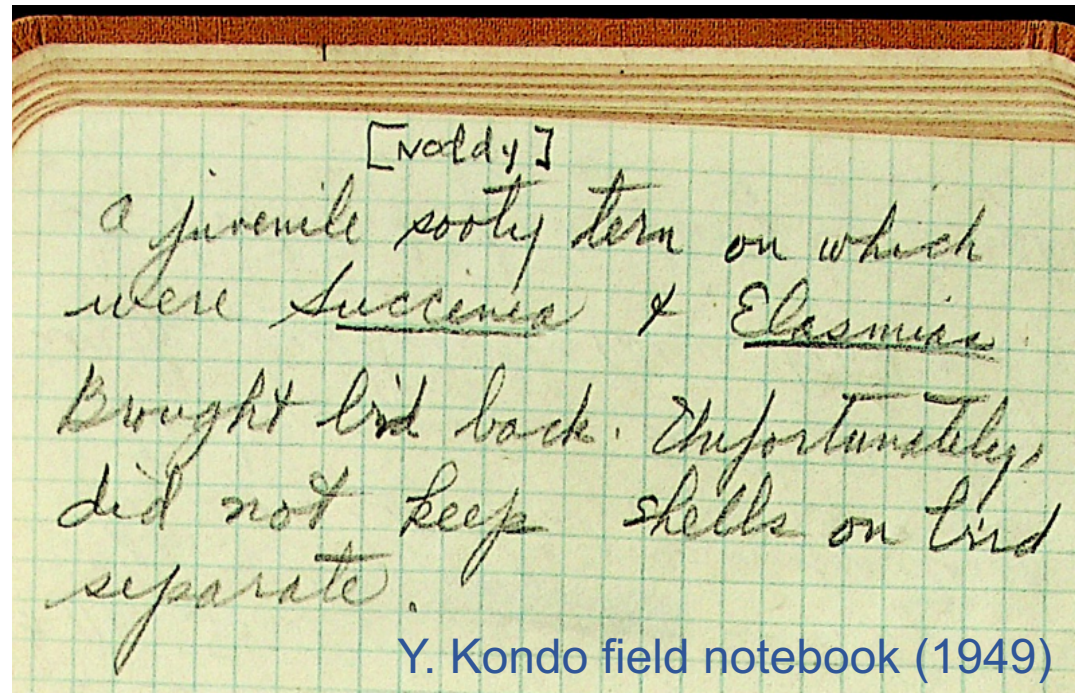 [Noddy]
a juvenile sooty tern on which
were Succinea & Elasmias.
Brought bird back. Unfortunately,
did not keep shells on bird
separate.
Y. Kondo field notebook (1949)